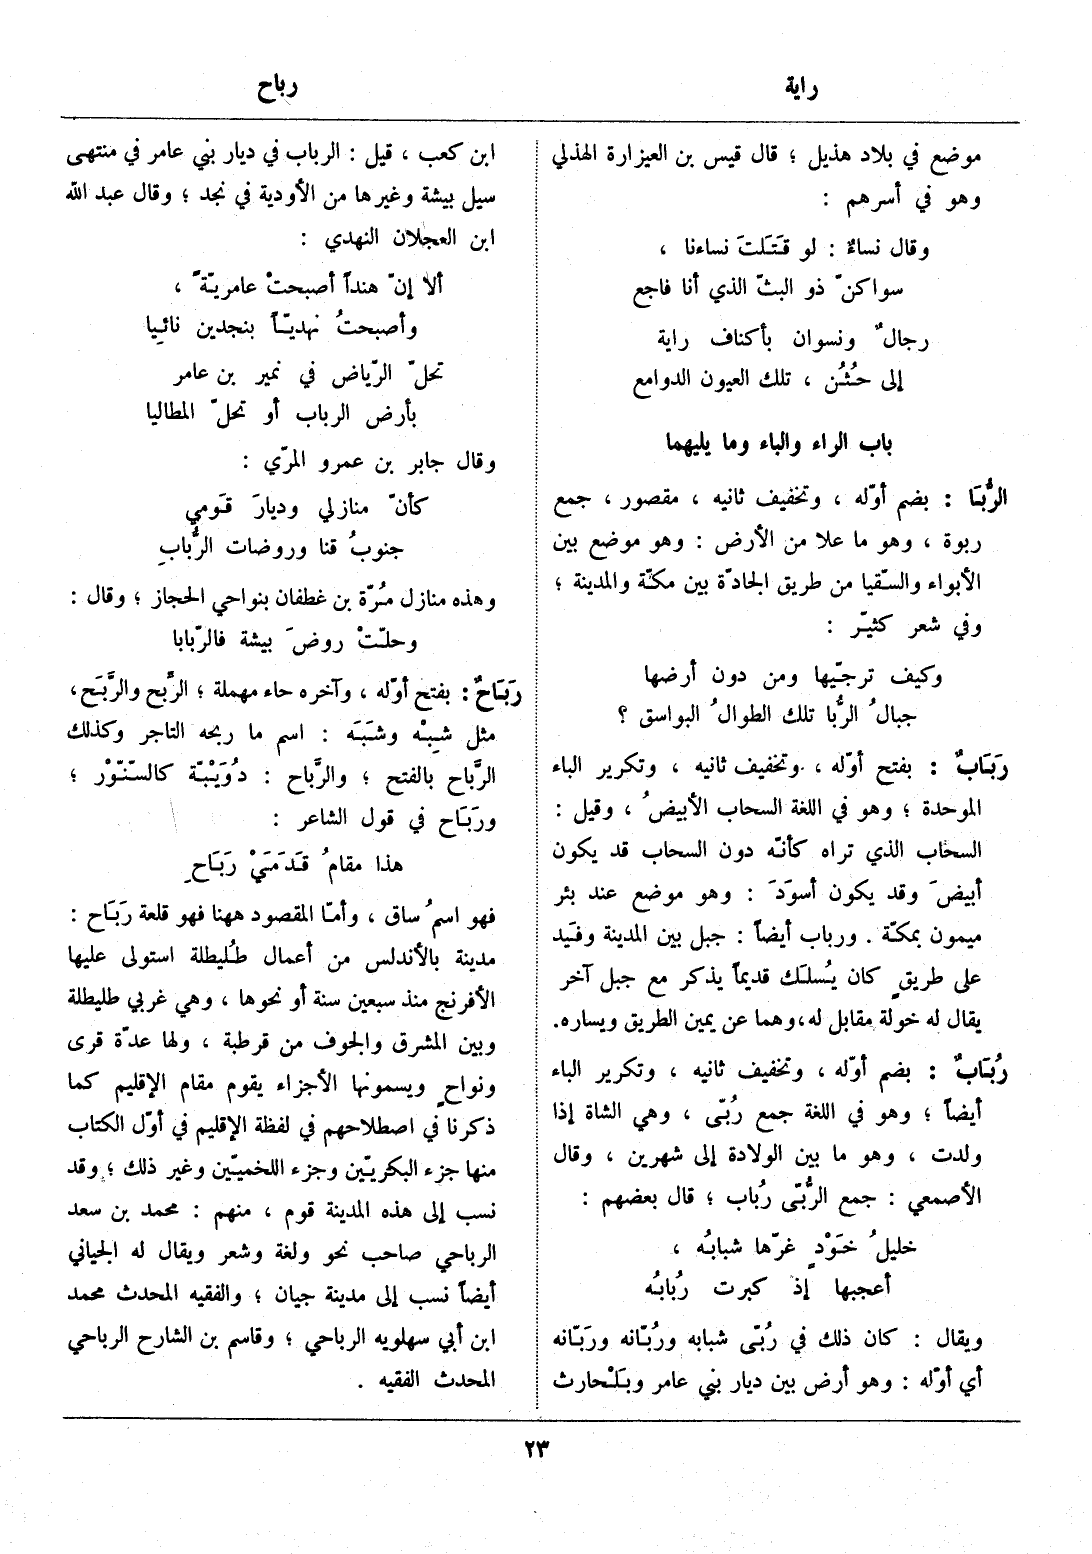 راية
رباح
موضع في بلاد هذيل ؛ قال قيس بن العيزارة الهذلي
وهو في أسرهم :
وقال نساءٌ : لو قَتَلتَ نساءنا ،
سواكنّ ذو البثّ الذي أنا فاجع
رجالٌ ونسوان بأكناف راية
إلى حُثُن ، تلك العيون الدوامع
باب الراء والباء وما يليهما
الرُّبَا : بضم أوّله ، وتخفيف ثانيه ، مقصور ، جمع
ربوة ، وهو ما علا من الأرض : وهو موضع بين
الأبواء والسّقيا من طريق الجادّة بين مكّة والمدينة ؛
وفي شعر كثيّر :
وكيف ترجّيها ومن دون أرضها
جبالُ الرُّبا تلك الطوالُ البواسق ؟
رَبَابٌ : بفتح أوّله ، وتخفيف ثانيه ، وتكرير الباء
الموحدة ؛ وهو في اللغة السحاب الأبيضُ ، وقيل :
السحاب الذي تراه كأنّه دون السحاب قد يكون
أبيضَ وقد يكون أسوَدَ : وهو موضع عند بئر
ميمون بمكّة . ورباب أيضاً : جبل بين المدينة وفَيد
على طريقٍ كان يُسلَك قديماً يذكر مع جبل آخر
يقال له خولة مقابل له، وهما عن يمين الطريق ويساره.
رُبَابٌ : بضم أوّله ، وتخفيف ثانيه ، وتكرير الباء
أيضاً ؛ وهو في اللغة جمع رُبّى ، وهي الشاة إذا
ولدت ، وهو ما بين الولادة إلى شهرين ، وقال
الأصمعي : جمع الرُّبّى رُباب ؛ قال بعضهم :
خليلُ خَوْدٍ غرّها شبابُه ،
أعجبها إذ كبرت رُبابُه
ويقال : كان ذلك في رُبّى شبابه ورُبّانه ورَبّانه
أي أوّله : وهو أرض بين ديار بني عامر وبَلْحارث
ابن كعب ، قيل : الرباب في ديار بني عامر في منتهى
سيل بيشة وغيرها من الأودية في نجد ؛ وقال عبد الله
ابن العجلان النهدي :
ألا إنّ هنداً أصبحتْ عامريّةً ،
وأصبحتُ نهديّاً بنجدين نائيا
تحلّ الرّياض في نمير بن عامر
بأرض الرباب أو تحلّ المطاليا
وقال جابر بن عمرو المرّي :
كأنّ منازلي وديارَ قَومي
جنوبُ قنا وروضات الرُّبابِ
وهذه منازل مُرّة بن غطفان بنواحي الحجاز ؛ وقال :
وحلّتْ روضَ بيشة فالرّبابا
رَبَاحٌ : بفتح أوّله ، وآخره حاء مهملة ؛ الرَّبح والرَّبَح،
مثل شِبْه وشَبَه : اسم ما ربحه التاجر وكذلك
الرَّباح بالفتح ؛ والرَّباح : دُوَيْبّة كالسّنّوْر ؛
ورَبَاح في قول الشاعر :
هذا مقامُ قَدَمَيْ رَبَاحِ
فهو اسمُ ساق ، وأمّا المقصود ههنا فهو قلعة رَبَاح :
مدينة بالأندلس من أعمال طُليطلة استولى عليها
الأفرنج منذ سبعين سنة أو نحوها ، وهي غربي طليطلة
وبين المشرق والجوف من قرطبة ، ولها عدّة قرى
ونواحٍ ويسمونها الأجزاء يقوم مقام الإقليم كما
ذكرنا في اصطلاحهم في لفظة الإقليم في أوّل الكتاب
منها جزء البكريّين وجزء اللخميّين وغير ذلك ؛ وقد
نسب إلى هذه المدينة قوم ، منهم : محمد بن سعد
الرباحي صاحب نحو ولغة وشعر ويقال له الجياني
أيضاً نسب إلى مدينة جيان ؛ والفقيه المحدث محمد
ابن أبي سهلويه الرباحي ؛ وقاسم بن الشارح الرباحي
المحدث الفقيه .
٢٣